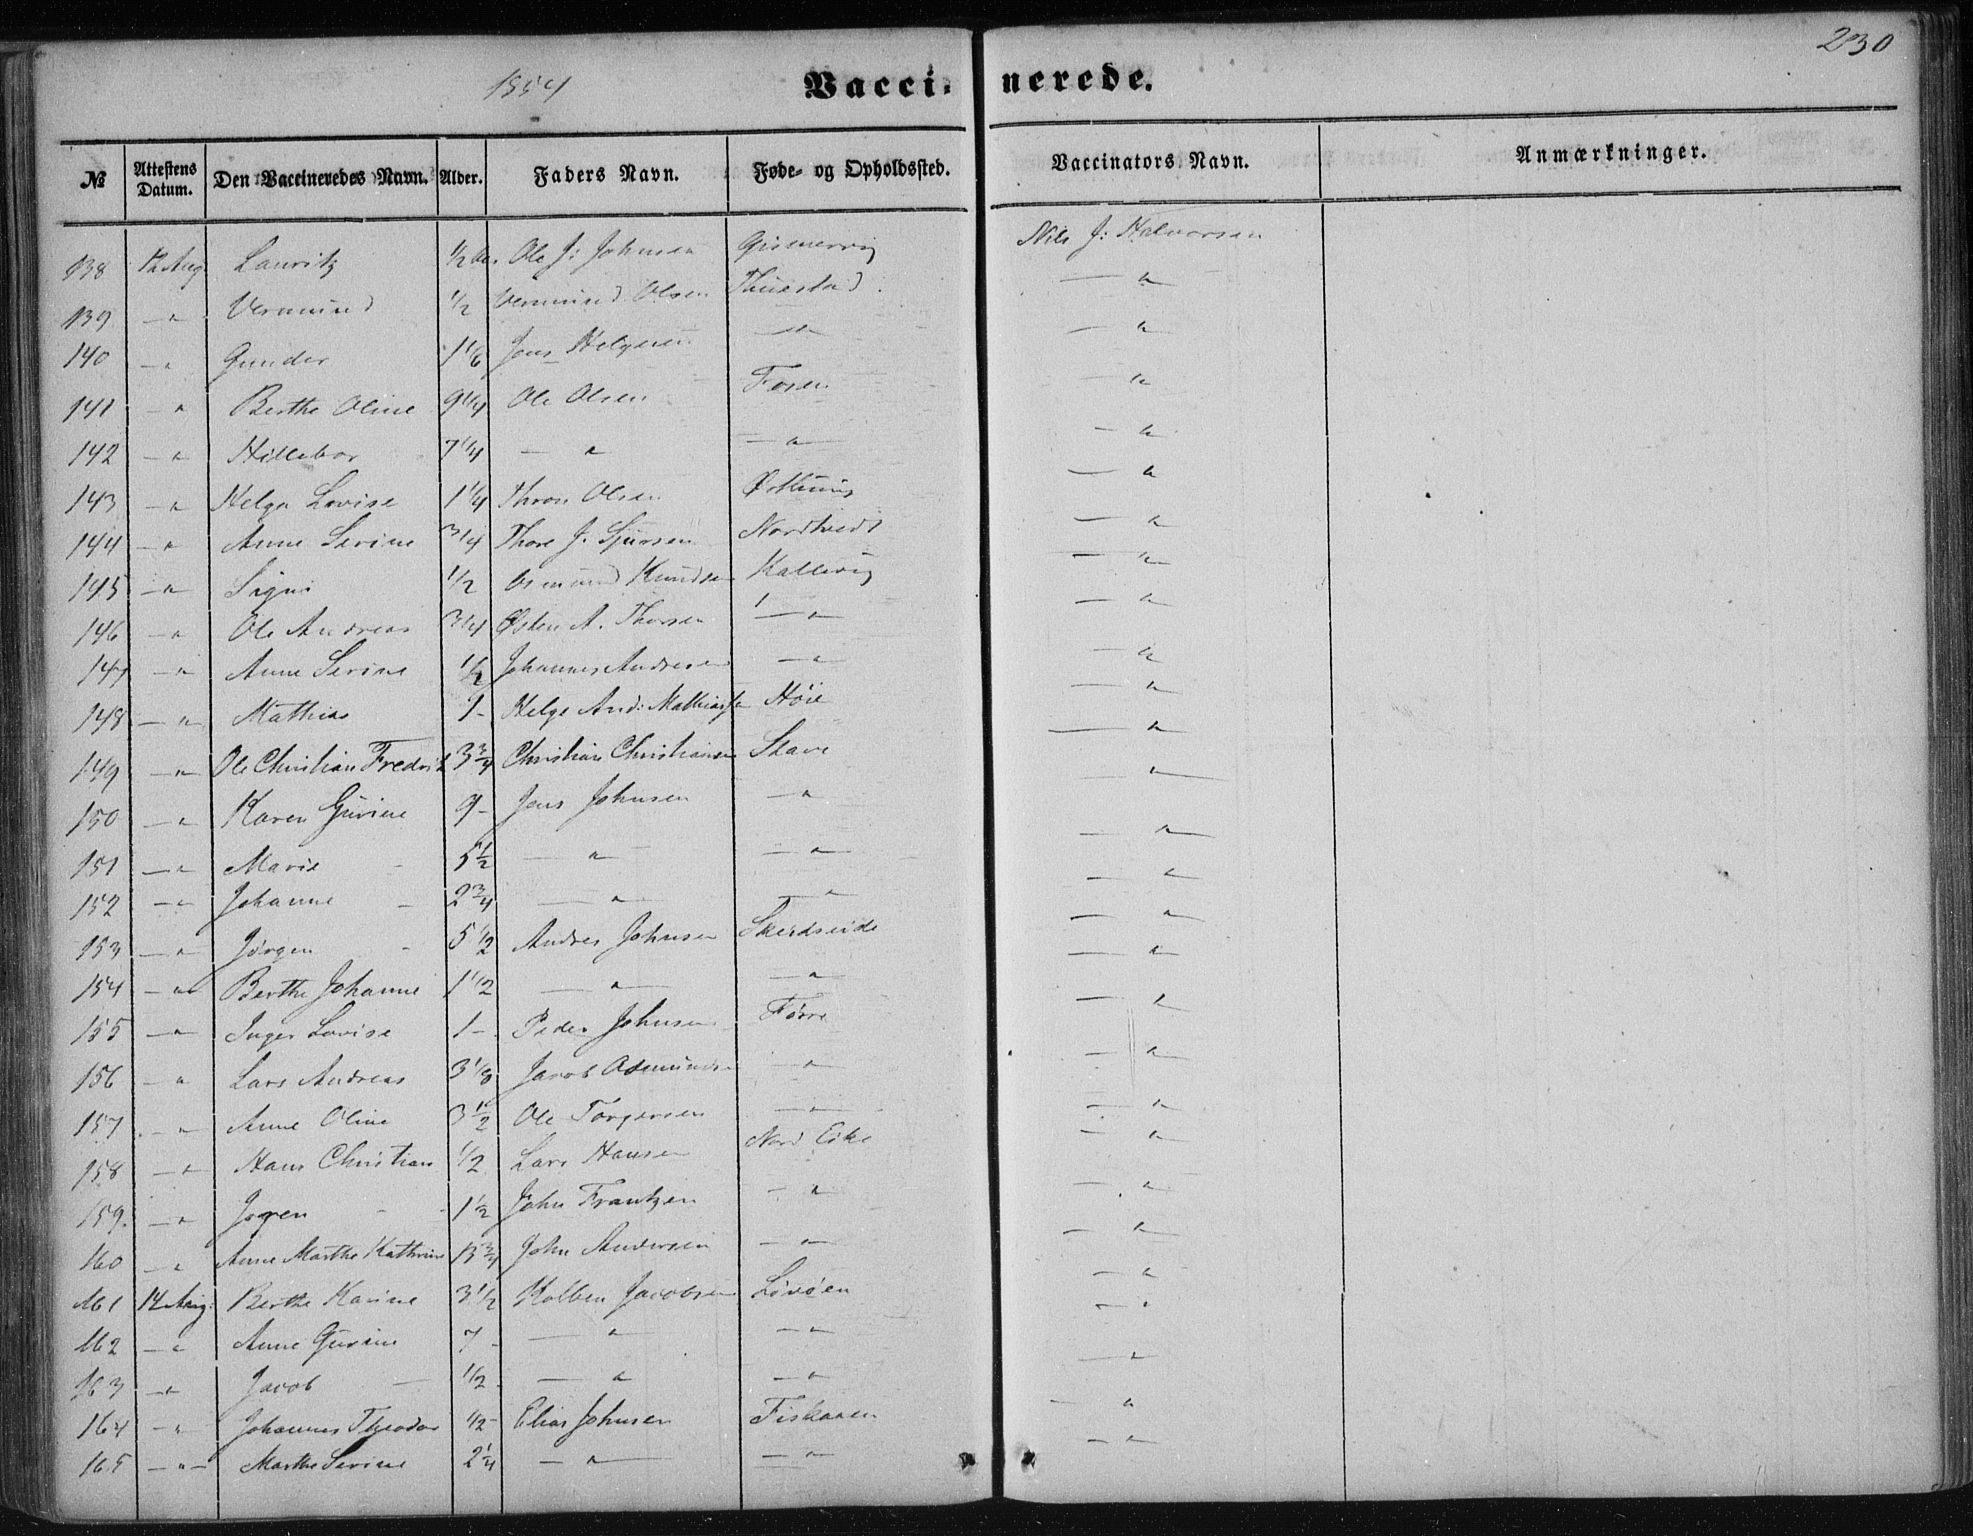 230
1854 Vaccinerede.
№ Attestens Datum. Den Vaccineredes Navn. Alder. Faders Navn. Føde- og Opholdssted. Vaccinators Navn. Anmærkninger.
138 12 Aug Lauritz 1/2 Ole J: Johnsen Gismervig Nils J: Halvorsen
139 — " Vermund 1/2 Vermund Olsen Thuestad — "
140 — " Gunder 1 1/6 Jens Helgesen — " — "
141 — " Berthe Oline 9 1/4 Ole Olsen Fosen — "
142 — " Hillebor 7 1/4 — " — " — "
143 — " Helga Lovise 1 1/4 Thron Olsen Østhuus — "
144 — " Anne Serine 3/4 Thore J. Sjursen Nordtvedt — "
145 — " Signi 1/2 Osmund Knudsen Kallevig — "
146 — " Ole Andreas 3/4 Østen A. Thorsen — " — "
147 — " Anne Serine 1/2 Johannes Andresen — " — "
148 — " Mathias 1 - Helge And: Mathiassen Høie — "
149 — " Ole Christian Fredrik 3 3/4 Christian Christiansen Stave — "
150 — " Karen Gurine 9 - Jens Johnsen — " — "
151 — " Marie 5 1/2 — " — " — "
152 — " Johanne 2 3/4 — " — " — "
153 — " Jørgen 5 1/2 Andres Johnsen — "
154 — " Berthe Johanne 1 1/2 — " — " — "
155 — " Inger Lovise 1 - Peder Johnsen Førre — "
156 — " Lars Andreas 3 1/8 Jacob Asmundsen — " — "
157 — " Anne Oline 3 1/2 Ole Torgersen — " — "
158 — " Hans Christian 1/2 Lars Hansen Nord Eike — "
159. — " 1 1/2 John Frantzen — " — "
160 — " Anne Marthe Kathrine 13 3/4 John Andersen — " — "
161 14 Aug: Berthe Karine 3 1/2 Kolben Jacobsen Løvøen — "
162 — " Anne Gurine 7 - — " — " — "
163 — " Jacob 1/2 — " — " — "
164 — " Johannes Theodor 1/2 - Elias Johnsen Fiskaaen — "
165 — " — Marthe Serine 2 1/4 — " — " — "